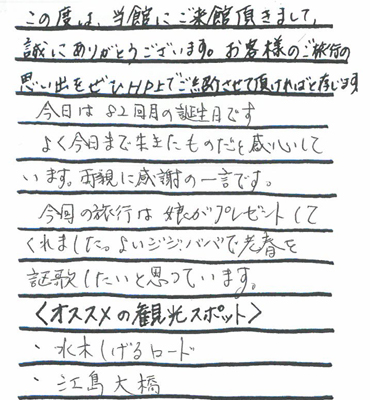 この度は、当館にご来館頂きまして、
誠にありがとうございます。お客様のご旅行の
思い出をぜひHP上でご紹介させて頂ければと存じます
今日は82回目の誕生日です
よく今日まで生きたものだと感心して
います。両親に感謝の一言です。
今回の旅行は娘がプレゼントして
くれました。よいジジ・ババで老春を
謳歌したいと思っています。
<オススメの観光スポット>
・水木しげるロード
・江島大橋